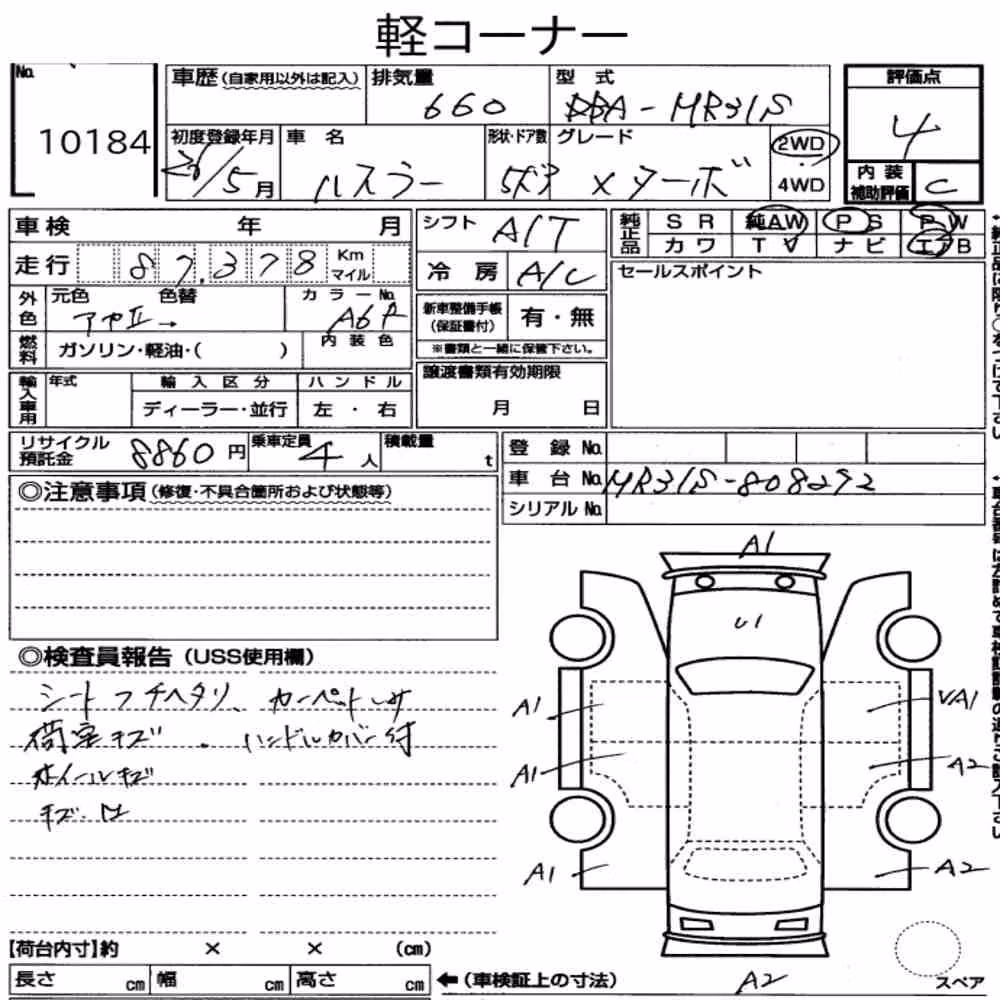 軽コーナー
No. 10184
車歴 (自家用以外は記入)
排気量 660
型式 DBA-MR31S
評価点 4
内装補助評価 C
初度登録年月 26/5月
車名 ハスラー
形状・ドア数 5ドア
グレード Xターボ
2WD
4WD
車検 年 月
走行 87,378 Km マイル
シフト A/T
冷房 A/C
純正品 SR 純AW PS PW
カワ TV ナビ エアB
セールスポイント
外色 元色 色替 カラーNo.
A6P
燃料 ガソリン・軽油・( )
内装色
新車整備手帳 (保証書付) 有・無
※書類と一緒に保管下さい。
譲渡書類有効期限
月 日
輸入車用 年式 輸入区分 ハンドル
ディーラー・並行 左・右
リサイクル預託金 8860円
乗車定員 4人
積載量 t
登録No.
車台No. MR31S-808292
シリアルNo.
◎注意事項 (修復・不具合箇所および状態等)
◎検査員報告 (USS使用欄)
シートフチヘタリ、カーペット
荷室キズ . ハンドルカバー付
ホイールキズ
キズ.凹
A1
U1
A1
VA1
A1
A2
A1
A2
A2
スペア
【荷台内寸】約 × × (cm)
長さ cm 幅 cm 高さ cm
←(車検証上の寸法)